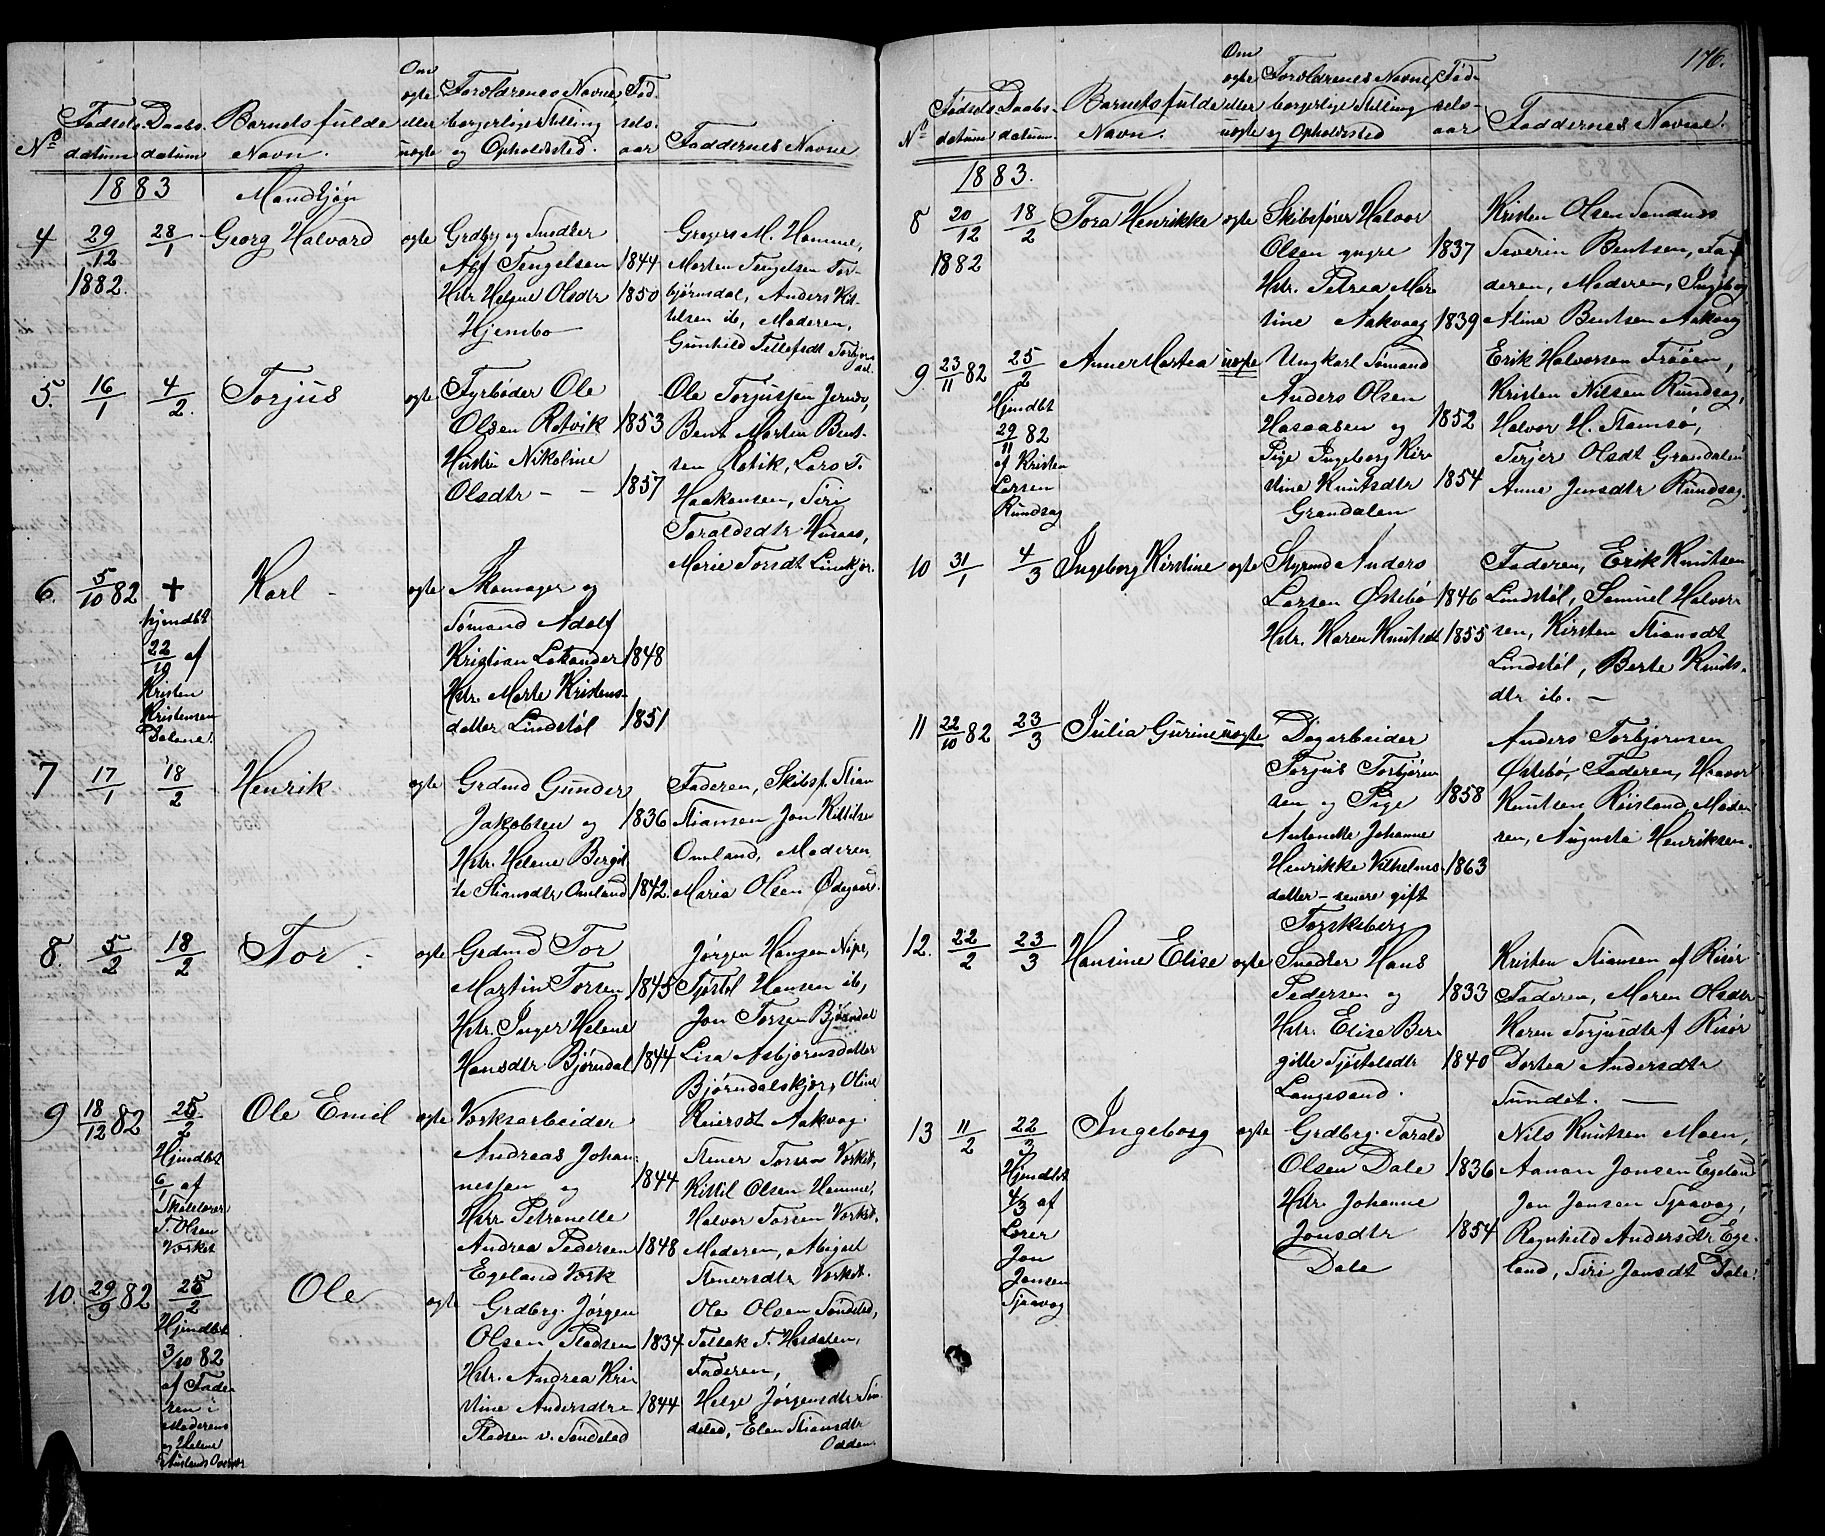 Nº Fødsels datum Daabs datum Barnets fulde Navn. Om ægte eller uægte Forældrenes Navne, borgerlige Stilling og Opholdssted. Fødselsaar Faddernes Navne
1883 Mandkjøn
4 29/12 1882. 28/1 Georg Halvard ægte
Grdbr. og Snedker
Alf Tengelsen 1844
Hstr. Helene Olsdtr 1850
Hjembo
Gregers M. Homme,
Morten Tengelsen Tor-
bjørnsdal, Anders Kit-
telsen ib, Moderen,
Gunhild Tellefsdt Torbjørns
dal.
5. 16/1 4/2. Torjus ægte
Fyrbøder Ole
Olsen Røtvik 1853
Hustru Nikoline
Olsdtr - - 1857
Ole Torjussen Jernæs,
Bent Morten Bent-
sen Røtvik, Lars T.
Haakensen, Siri
Taraldsdtr Husaas,
Marie Torsdt Linkjær.
6. 5/10 82 + Karl - ægte
hjemdbt
22/10 af
Kristen
Kristensen
Dalene.
Skomager og
Sømand Adolf
Kristian Lokander 1848
Hstr. Marte Kristens-
datter Lindstøl 1851
7 17/1 18/2 Henrik ægte
Grdmd Gunder
Jakobsen og 1836
Hstr. Helene Bergit-
te Stiansdtr Omland 1842.
Faderen, Skibsf. Stian
Stiansen Jon Kittilsen
Omland, Moderen,
Maria Olsen Ødegaard.
8. 5/2 18/2 Tor - ægte
Grdmd Tor
Martin Torsen 1845
Hstr. Inger Helene
Hansdtr. Bjørndal 1844
Jørgen Hansen Nipe,
Tjøstøl Hansen ib,
Jon Torsen Bjørndal
Lisa Asbjørnsdatter
Bjørndalskjær, Oline
Reiersdt Aakvag.
9 18/12 82 25/2 Ole Emil ægte
Hjemdbt
6/1 af
Skolelærer
T. Olsen
Værket
Værksarbeider
Andreas Johan-
nessen og 1844
Hstr Petronelle
Andrea Pedersen 1848
Egeland Værk
Stener Torsen Værket,
Kittil Olsen Homme,
Halvor Torsen Værket,
Moderen, Abigael
Stenersdtr Værket.
10. 29/9 82 25/2 Ole ægte
Hjemdbt
3/10 82
af Fade-
ren i
Moderens
og Helene
Grdbrg. Jørgen
Olsen Pladsen 1834
Hstr. Andrea Kri-
stine Andersdtr 1844
Pladsen v. Søndeled
Ole Olsen Søndeled,
Tallak T. Hasdalen,
Faderen,
Helge Jørgensdtr Søn-
deled, Elen Stiansdtr
Odden.
176.
Nº Fødsels datum Daabs datum. Barnets fulde Navn. Om ægte eller uægte Forældrenes Navne, borgerlige Stilling og Opholdssted Fødselsaar Faddernes Navne.
1883.
8 20/12 1882 18/2 Tora Henrikke ægte
Skibsfører Halvor
Olsen yngre 1837
Hstr. Petrea Mar-
tine Aakvaag 1839
Kristen Olsen Sandnæs
Severin Bentsen, Fa-
deren, Moderen, Ingeborg
Aline Bentsen Aakvag
9 23/11 82 25/2 Anne Martea uægte
Hjemdbt
29/11 82
af Kristen
Larsen
Rundsag
Ungkarl Sømand
Anders Olsen
Hasaasen og 1852
Pige Ingeborg Kir-
stine Knutsdtr 1854
Grandalen
Erik Halvorsen Frøøen,
Kristen Nilsen Rundsag,
Halvor H. Stamsø,
Terjer Olsdt Grandalen
Anne Jensdtr Rundsag.
10 31/1 4/3 Ingeborg Kirstine ægte
Styrmd Anders
Larsen Østebø 1846
Hstr. Karen Knutsdt 1855
Faderen, Erik Knutsen
Lindstøl, Samuel Halvor-
sen, Kirsten Stiansdt
Lindstøl, Berte Knuts-
dtr ib. -
11 22/10 82 23/3 Julia Gurine uægte
Dagarbeider
Torjus Torbjørn-
sen og Pige 1858
Antonette Johanne
Henrikke Vilhelms- 1863
datter - senere gift
Torskeberg
Anders Torbjørnsen
Østebø, Faderen, Haavor
Knutsen Risland, Mode-
ren, Augusta Henriksen.
12. 22/2 23/3 Hansine Elise ægte
Snedker Hans
Pedersen og 1833
Hstr. Elise Ber-
gitte Tjøstelsdtr 1840
Langesand.
Kristen Stiansen af Risør
Faderen, Maren Olsdtr
Karen Torjusdtr af Risør
Dortea Andersdtr
Sundet. -
13 11/2 22/3 Ingeborg ægte
Hjemdbt
4/3 af
Lærer
Jon
Jensen
Sjaavag
Grdbrg. Tarald
Olsen Dale 1836
Hstr. Johanne
Jonsdtr 1854
Dale
Nils Knutsen Moen,
Aanon Jonsen Egeland
Jon Jensen Sjaavag,
Ragnhild Andersdtr Ege-
land, Siri Jonsdt Dale.